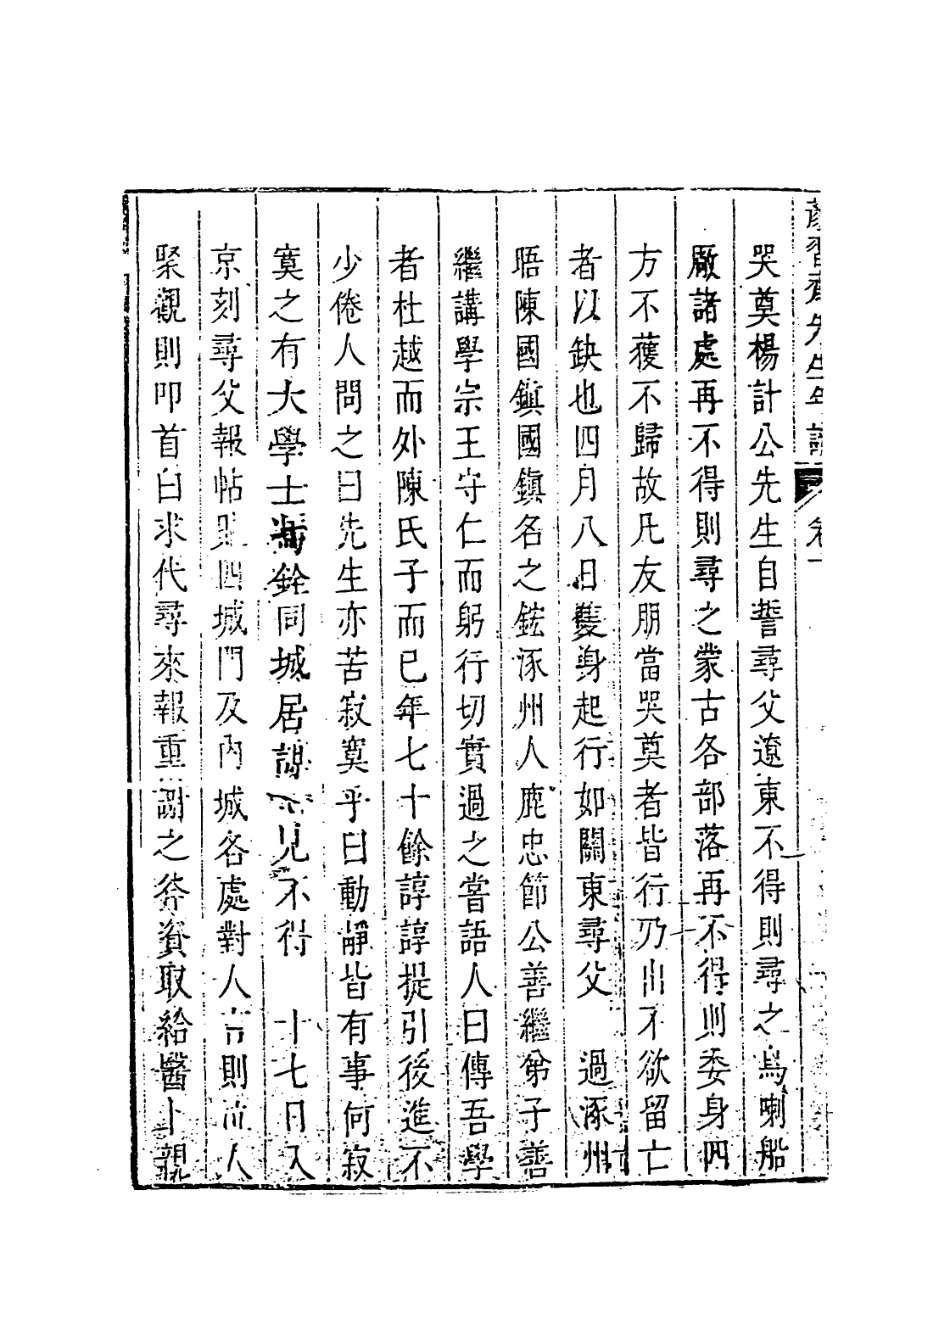 顏習齋先生年譜 卷
哭奠楊計公先生自誓尋父遼東不得則尋之烏喇船
厰諸處再不得則尋之蒙古各部落再不得則委身四
方不獲不歸故凡友朋當哭奠者皆行乃出不欲留亡
者以缺也四月八日隻身起行如關東尋父 過涿州
晤陳國鎭國鎭名之鋐涿州人鹿忠節公善繼弟子善
繼講學宗王守仁而躬行切實過之嘗語人曰傳吾學
者杜越而外陳氏子而已年七十餘諄諄提引後進不
少倦人問之曰先生亦苦寂寞乎曰動靜皆有事何寂
寞之有大學士馮銓同城居謀 見不得 十七日入
京刻尋父報帖貼四城門及內城各處對人言則泣人
聚觀則叩首曰求代尋來報重謝之 資取給醫卜親